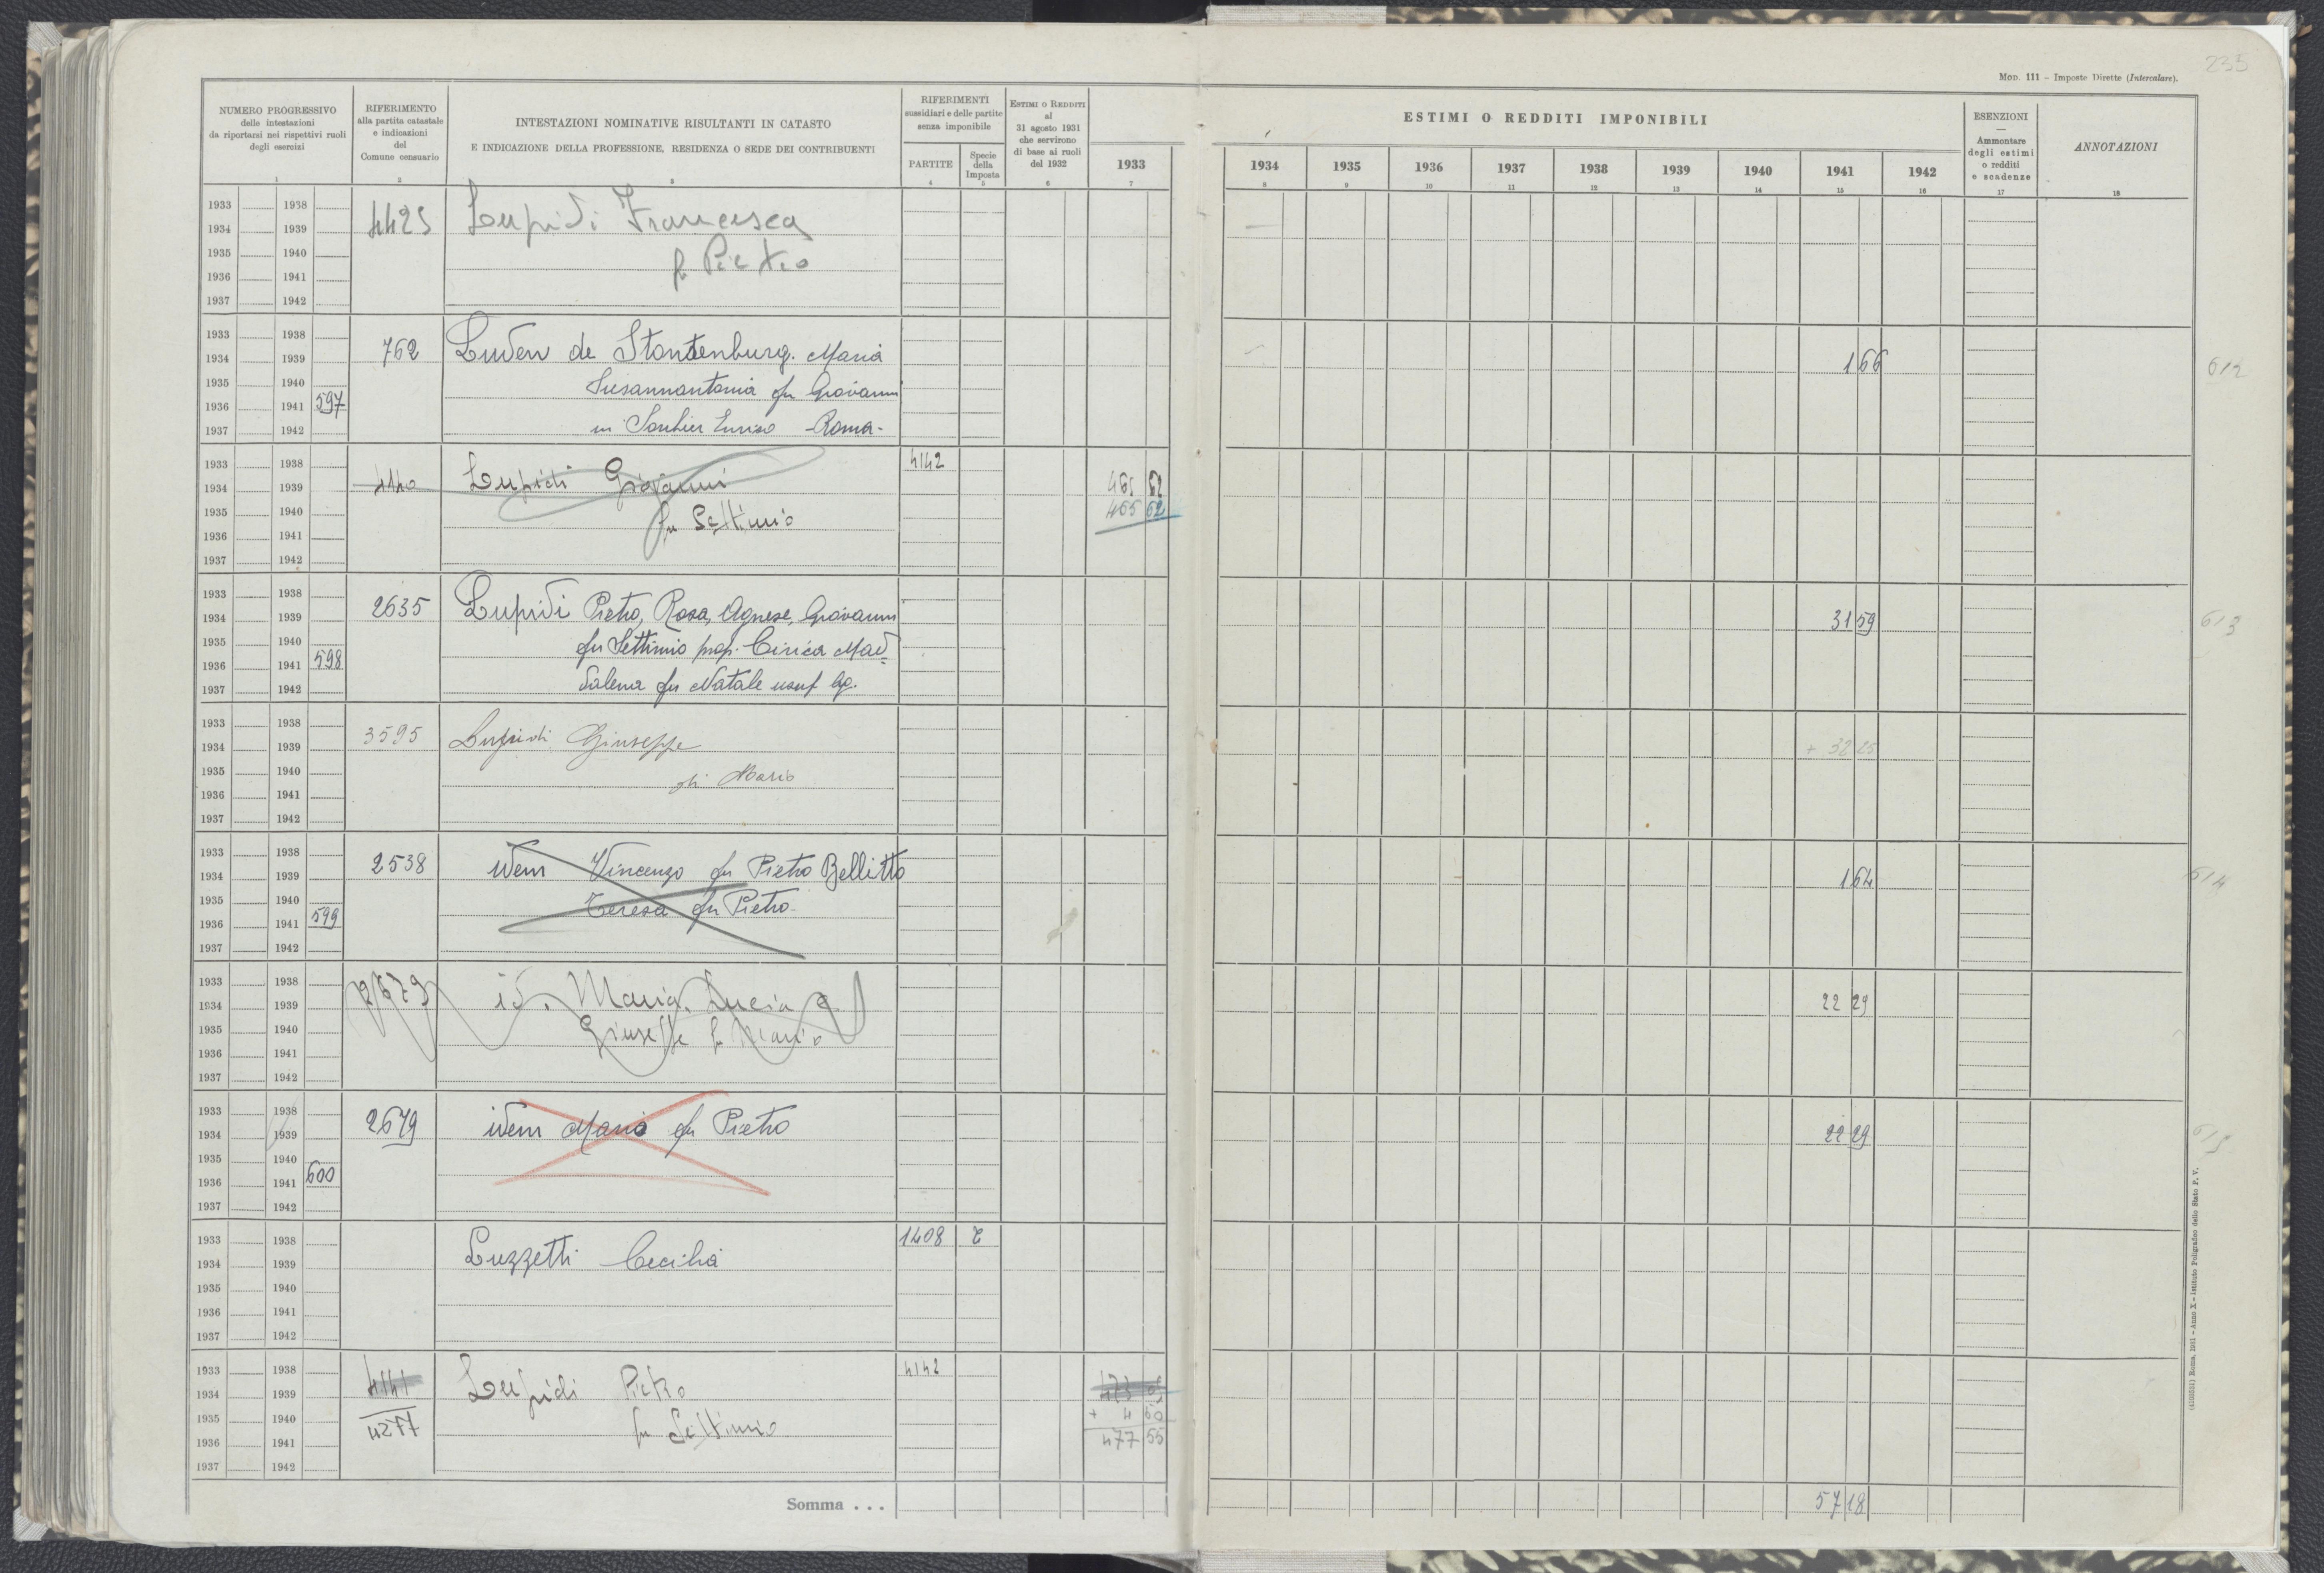 235
MOD. 111 – Imposte Dirette (Intercalare).
NUMERO PROGRESSIVO
delle intestazioni
da riportarsi nei rispettivi ruoli
degli esercizi
1
RIFERIMENTO
alla partita catastale
e indicazioni
del
Comune censuario
2
INTESTAZIONI NOMINATIVE RISULTANTI IN CATASTO
E INDICAZIONE DELLA PROFESSIONE, RESIDENZA O SEDE DEI CONTRIBUENTI
3
RIFERIMENTI
sussidiari e delle partite
senza imponibile
PARTITE
4
Specie
della
Imposta
5
ESTIMI O REDDITI
al
31 agosto 1931
che servirono
di base ai ruoli
del 1932
6
ESTIMI O REDDITI IMPONIBILI
1933 1934 1935 1936 1937 1938 1939 1940 1941 1942
7 8 9 10 11 12 13 14 15 16
ESENZIONI
—
Ammontare
degli estimi
o redditi
e scadenze
17
ANNOTAZIONI
18
1933 1938
1934 1939 4425 Lupidi Francesca
1935 1940 fu Pietro
1936 1941
1937 1942
1933 1938
1934 1939 762 Luden de Stontenburg Maria 1 66 612
1935 1940 Susannantonia fu Giovanni
1936 1941 597
1937 1942 in Roma-
1933 1938 4142
1934 1939 Lupidi Giovanni 465 52
1935 1940 fu Settimio 465 62
1936 1941
1937 1942
1933 1938
1934 1939 2635 Lupidi Pietro, Rosa, Agnese, Giovanni 31 59 613
1935 1940 fu Settimio prop. Cirica Mad
1936 1941 598
1937 1942 dalena fu Natale usuf
1933 1938
1934 1939 3595 Lupidi Giuseppe + 32 25
1935 1940 di Mario
1936 1941
1937 1942
1933 1938
1934 1939 2538 idem Vincenzo fu Pietro Bellitto 1 64 614
1935 1940 Teresa fu Pietro
1936 1941 599
1937 1942
1933 1938
1934 1939 2679 id. Maria, Lucia e 22 29
1935 1940 Giuseppe fu Mario
1936 1941
1937 1942
1933 1938
1934 1939 2679 idem Mario fu Pietro 22 29 615
1935 1940
1936 1941 600
1937 1942
1933 1938 1408
1934 1939 Luzzetti Cecilia
1935 1940
1936 1941
1937 1942
1933 1938 4142
1934 1939 4141 Lupidi Pietro
1935 1940 4277 fu Settimio + 4 50
1936 1941 477 55
1937 1942
Somma . . . 57 18
(4103531) Roma, 1931 – Anno X – Istituto Poligrafico dello Stato P. V.